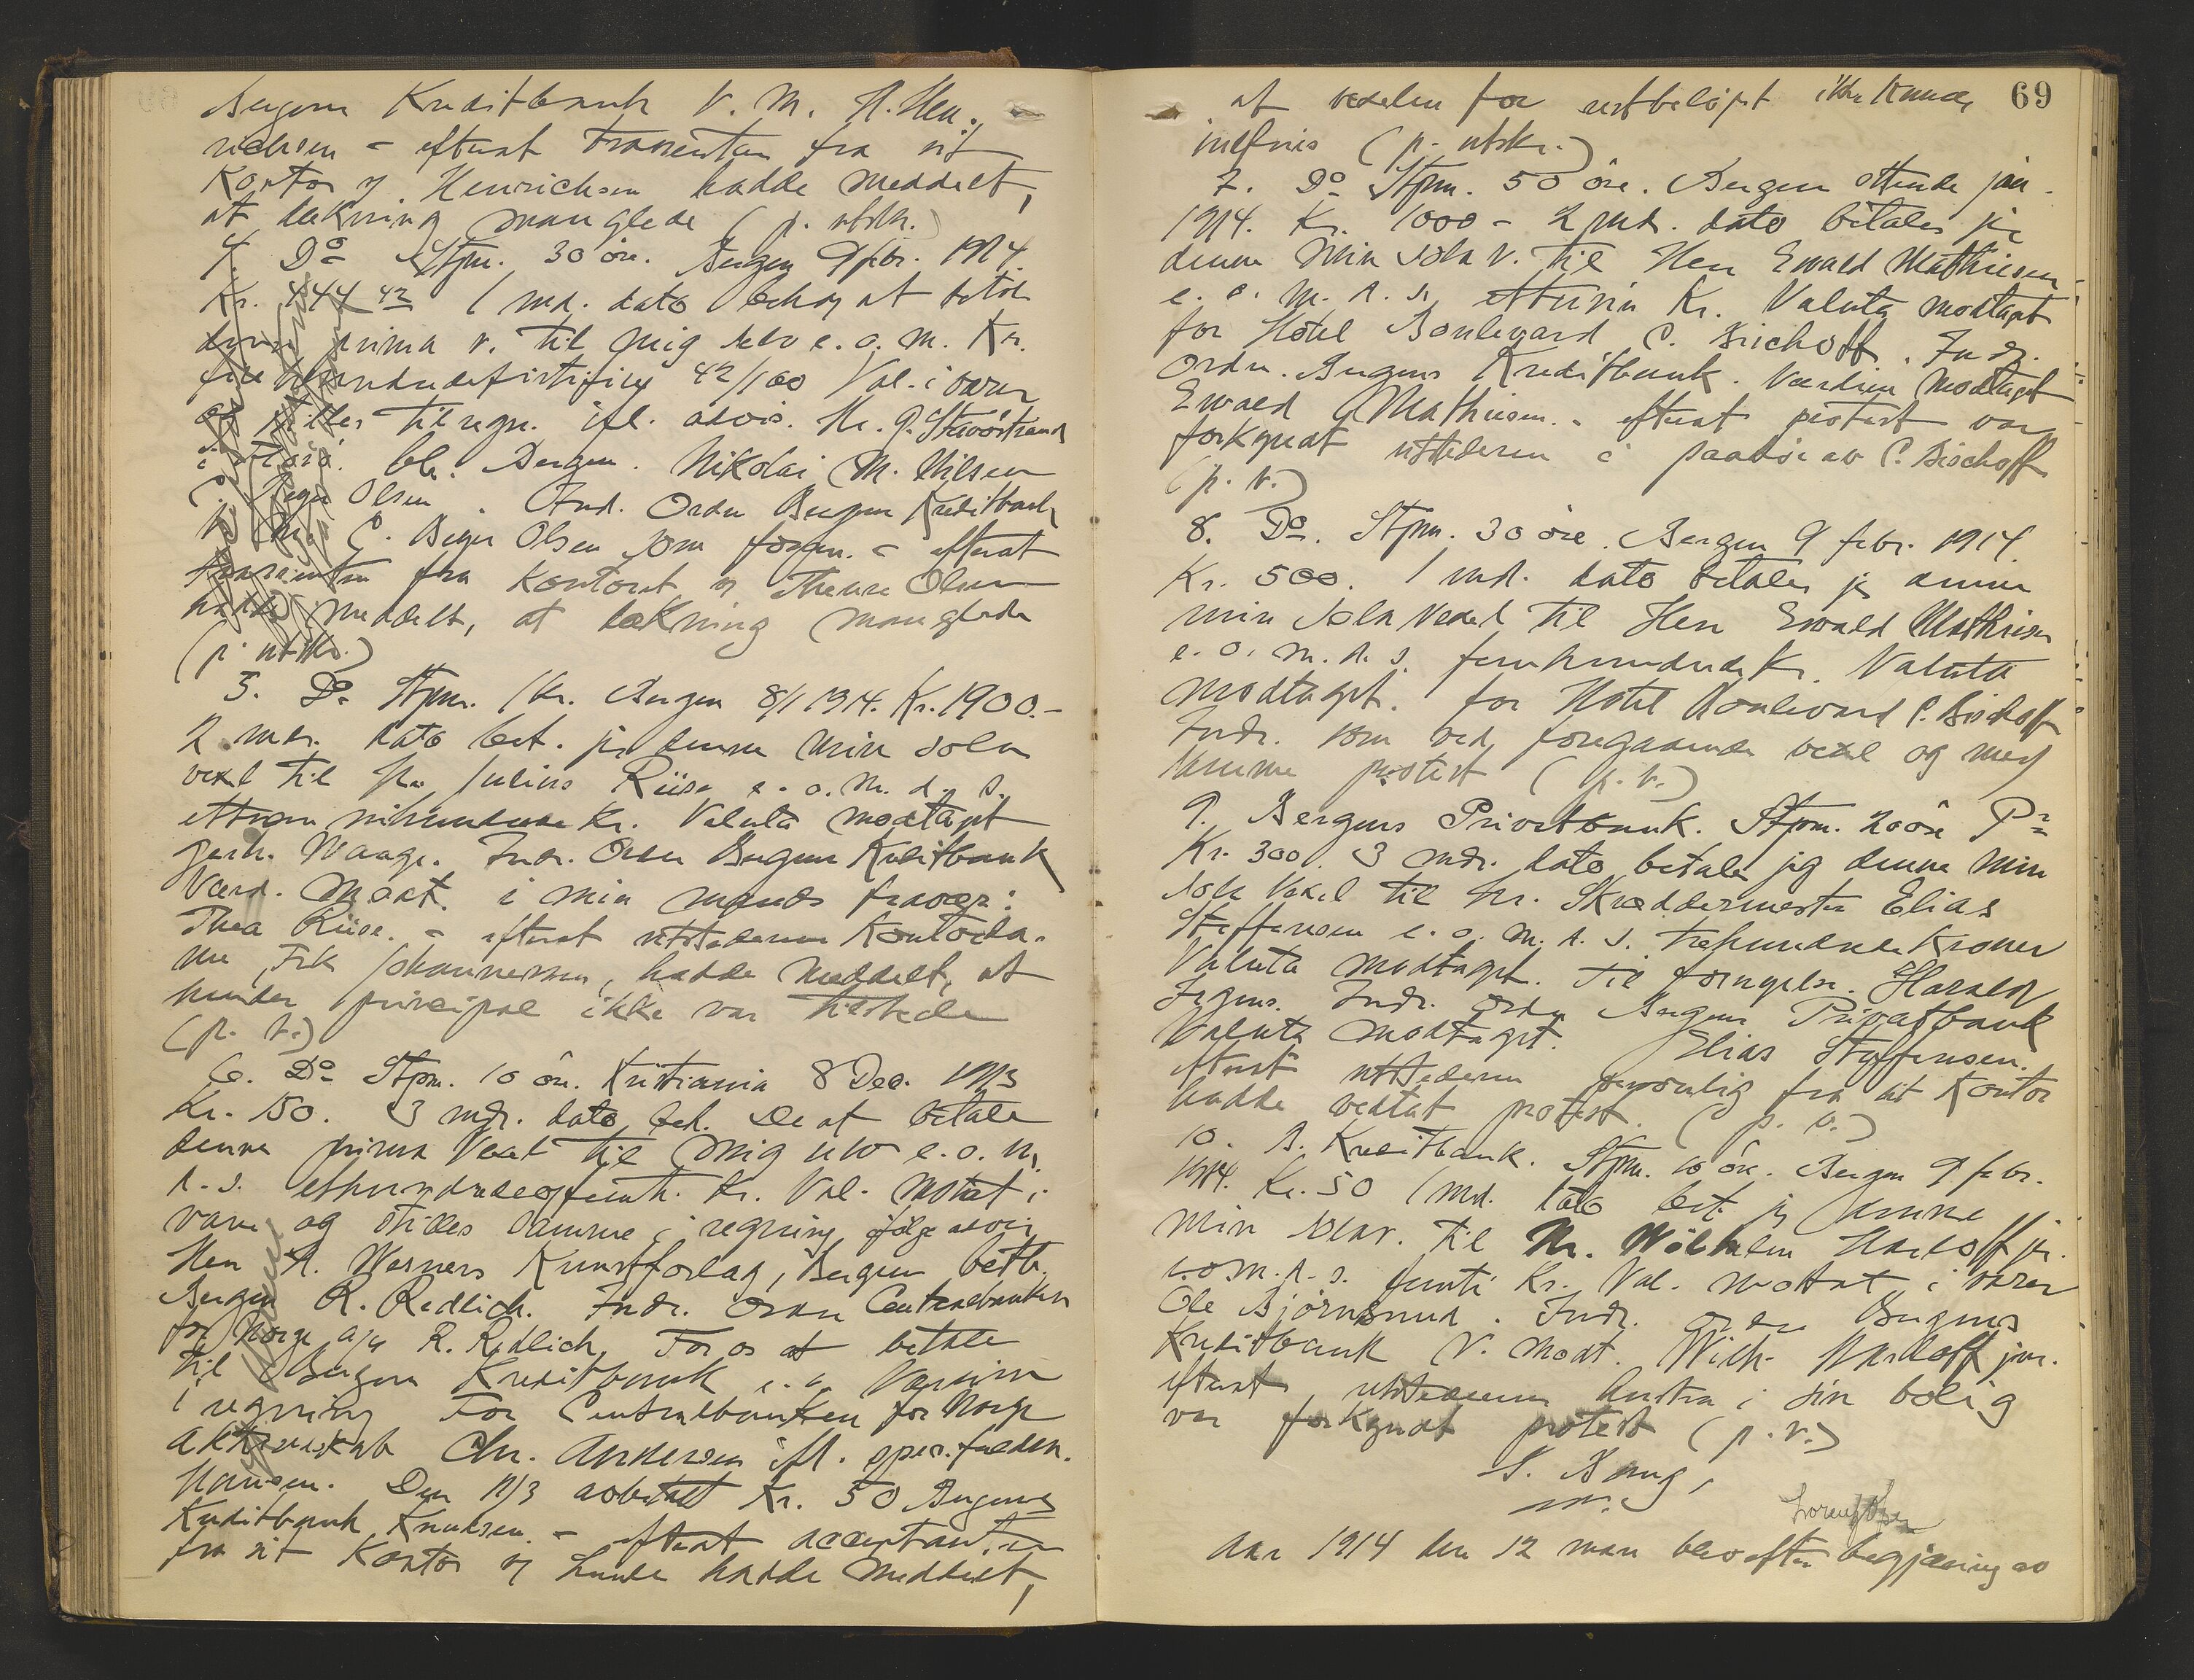 Bergens Kreditbank V. M. A. Hen-
richsen - efterat trassenten fra sit
Kontor v/ Henrichsen hadde meddelt,
at dækning manglede (p. utstk.)
4. Do Stpm. 30 øre. Bergen 9 febr. 1914.
Kr. 444 42 1 md. dato behag at betale
denne prima v. til mig selv e. o. m. Kr.
firehundredefirtifire 42/100 Val. i varer
og stilles til regn. ifl. avis. Hr. J. Straustrand
Bergen. Nikolai M. Nilsen
Olsen. Ind. Ordre Bergens Kreditbank
C. Beyer Olsen som foran. - efterat
trassenten fra kontoret v/ Olsen
hadde meddelt, at dækning manglede
(p. utstk.)
5. Do Stpm. 1 kr. Bergen 8/1 1914. Kr. 1900.-
2 mdr. dato bet. jeg denne min sola
vexel til Hr. Julius Riise e. o. m. d. s.
ettusen nihundrede Kr. Valuta modtaget
Waage. Indr. Ordre Bergens Kreditbank
Værd. modt. i min mands fravær:
Thea Riise. - efterat utstederens Kontorda-
me, Frk Johannessen, hadde meddelt, at
hendes principal ikke var tilstede
(p. v.)
6. Do Stpm. 10 øre. Kristiania 8 Dec. 1913
Kr. 150. 3 mdr. dato beh. De at betale
denne prima Vexel til mig selv e. o. m.
d. s. ethundredeogfemti. Kr. Val. mottat i
varer og stilles samme i regning ifølge avis
Herr A. Werners Kunstforlag, Bergen betb.
Bergen R. Redlich. Indr. Ordre Centralbanken
for Norge a/s R. Redlich. For os at betale
til Bergens Kreditbank e. o. Værdien
i regning For Centralbanken for Norge
Aktieselskab Chr. Andersen ifl. spec. fuldm.
Hansen. Den 11/3 avbetalt Kr. 50 Bergens
Kreditbank Knudsen. - efterat acceptanten
fra sit Kontor v/ Lunde hadde meddelt,
69
at vexelen for restbeløpet ikke kunde
indfries (p. utstk.)
7. Do Stpm. 50 øre. Bergen ottende jan.
1914. Kr. 1000 - 2 mdr. dato betaler jeg
denne min sola v. til Herr Ewald Mathiesen
e. o. m. d. s. ettusin Kr. Valuta modtaget
for Hotel Boulevard C. Bischoff. Indr.
Ordre. Bergens Kreditbank. Værdien modtaget
Ewald Mathiesen. - efterat protest var
forkyndt utstederen i paahør av C. Bischoff
(p. v.)
8. Do. Stpm. 30 øre. Bergen 9 febr. 1914.
Kr. 500. 1 md. dato betaler jeg denne
min sola vexel til Herr Ewald Mathiesen
e. o. m. d. s. femhundrede Kr. Valuta
modtaget. for Hotel Boulevard C. Bischoff
Indr. som ved foregaaende vexel og med
samme protest (p. v.)
9. Bergens Privatbank. Stpm. 20 øre
Kr. 300. 3 mdr. dato betaler jeg denne min
sola Vexel til Hr. Skræddermester Elias
Steffensen e. o. m. d. s. trehundrede Kroner
Valuta modtaget. til fornyelse. Harald
Indr. Ordre Bergens Privatbank
Valuta modtaget. Elias Steffensen.
efterat utstederen personlig fra sit Kontor
hadde vedtat protest. (p. v.)
10. B. Kreditbank. Stpm. 10 øre. Bergen 9 febr.
1914. Kr. 50 1 md. dato bet. jeg denne
min sola v. til Hr. Wilhelm Harloff jr.
e. o. m. d. s. femti Kr. Val. mottat i varer
Ole Bjørnsund. Indr. ordre Bergens
Kreditbank V. modt. Wilh. Harloff jun.
efterat utstederens hustru i sin bolig
var forkyndt protest (p. v.)
S. Bang,
Aar 1914 den 12 mars blev efter begjæring av